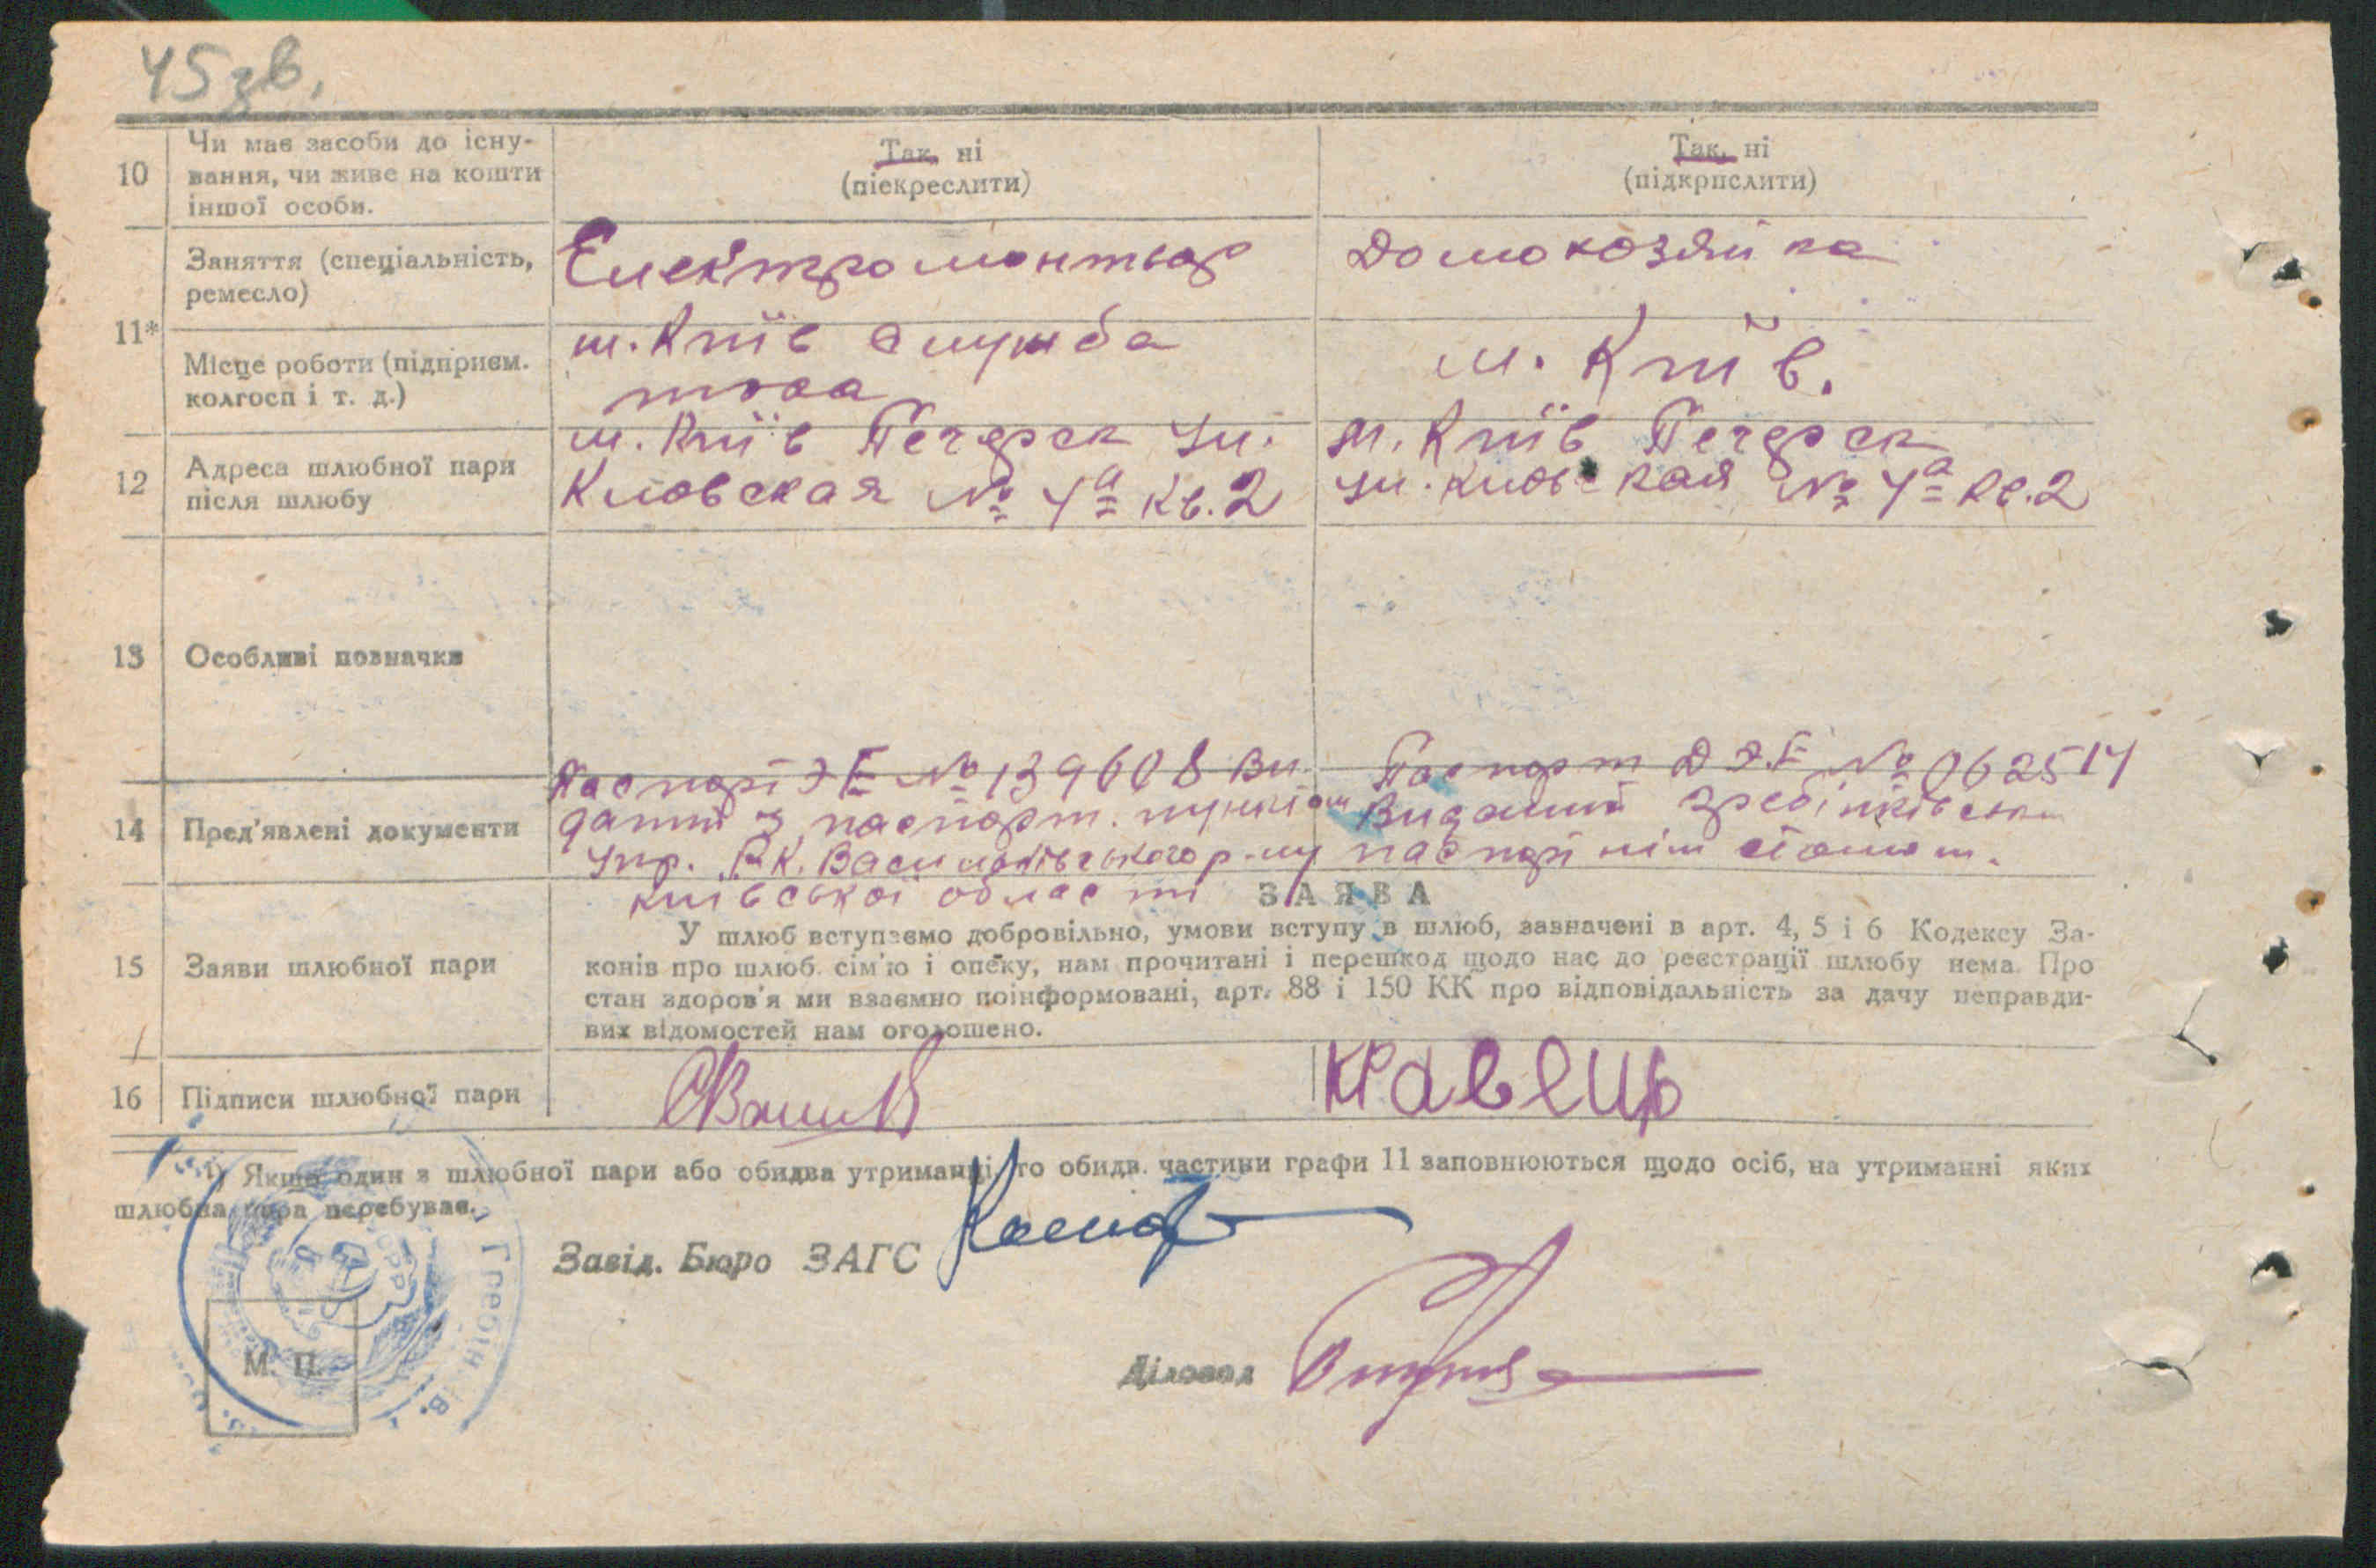 45 зв.
10
Чи має засоби до існу-
вання, чи живе на кошти
іншої особи.
Так, ні
(піекреслити)
Так, ні
(підкрпслити)
11*
Заняття (спеціальність,
ремесло)
Електромонтьор
Домохозяйка
Місце роботи (підприєм.
колгосп і т. д.)
м. Київ служба
м. Київ.
12
Адреса шлюбної пари
після шлюбу
м. Київ Печерск ул.
Кловская № 4а кв. 2
м. Київ Печерск
ул. Кловская № 4а кв. 2
13
Особливі позначки
14
Пред'явлені документи
Паспорт ЭЕ № 139608 Ви
даний з паспорт. пунктом
упр. Р.К. Васильківського р-ну
київської області
Паспорт № 062514
Виданий Гребінківськи
паспортнім столом.
15
Заяви шлюбної пари
ЗАЯВА
У шлюб вступаємо добровільно, умови вступу в шлюб, зазначені в арт. 4, 5 і 6 Кодексу За-
конів про шлюб. сім'ю і опеку, нам прочитані і перешкод щодо нас до реєстрації шлюбу нема. Про
стан здоров'я ми взаємно поінформовані, арт. 88 і 150 КК про відповідальність за дачу неправди-
вих відомостей нам оголошено.
16
Підписи шлюбної пари
Кравець
1) Якщо один з шлюбної пари або обидва утриманці, то обидв. частини графи 11 заповнюються щодо осіб, на утриманні яких
шлюбна пара перебуває.
Завід. Бюро ЗАГС
М. П.
Діловод